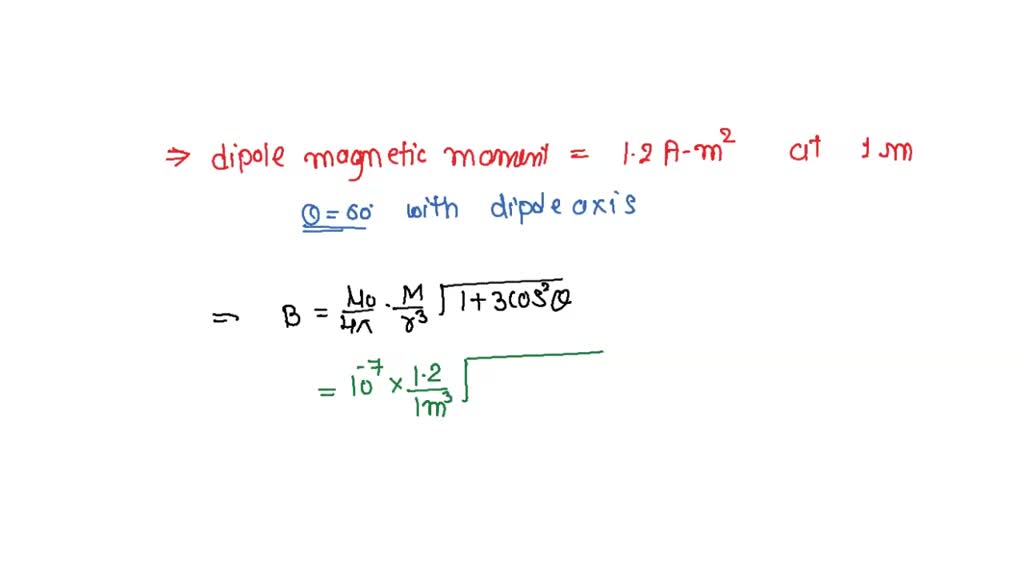 ⇒ dipole magnetic moment = 1.2 A-m² at 1m
θ = 60° with dipole axis
⇒ B = μ0/4π · M/r³ √1+3cos²θ
= 10⁻⁷ × 1.2/1m³ √